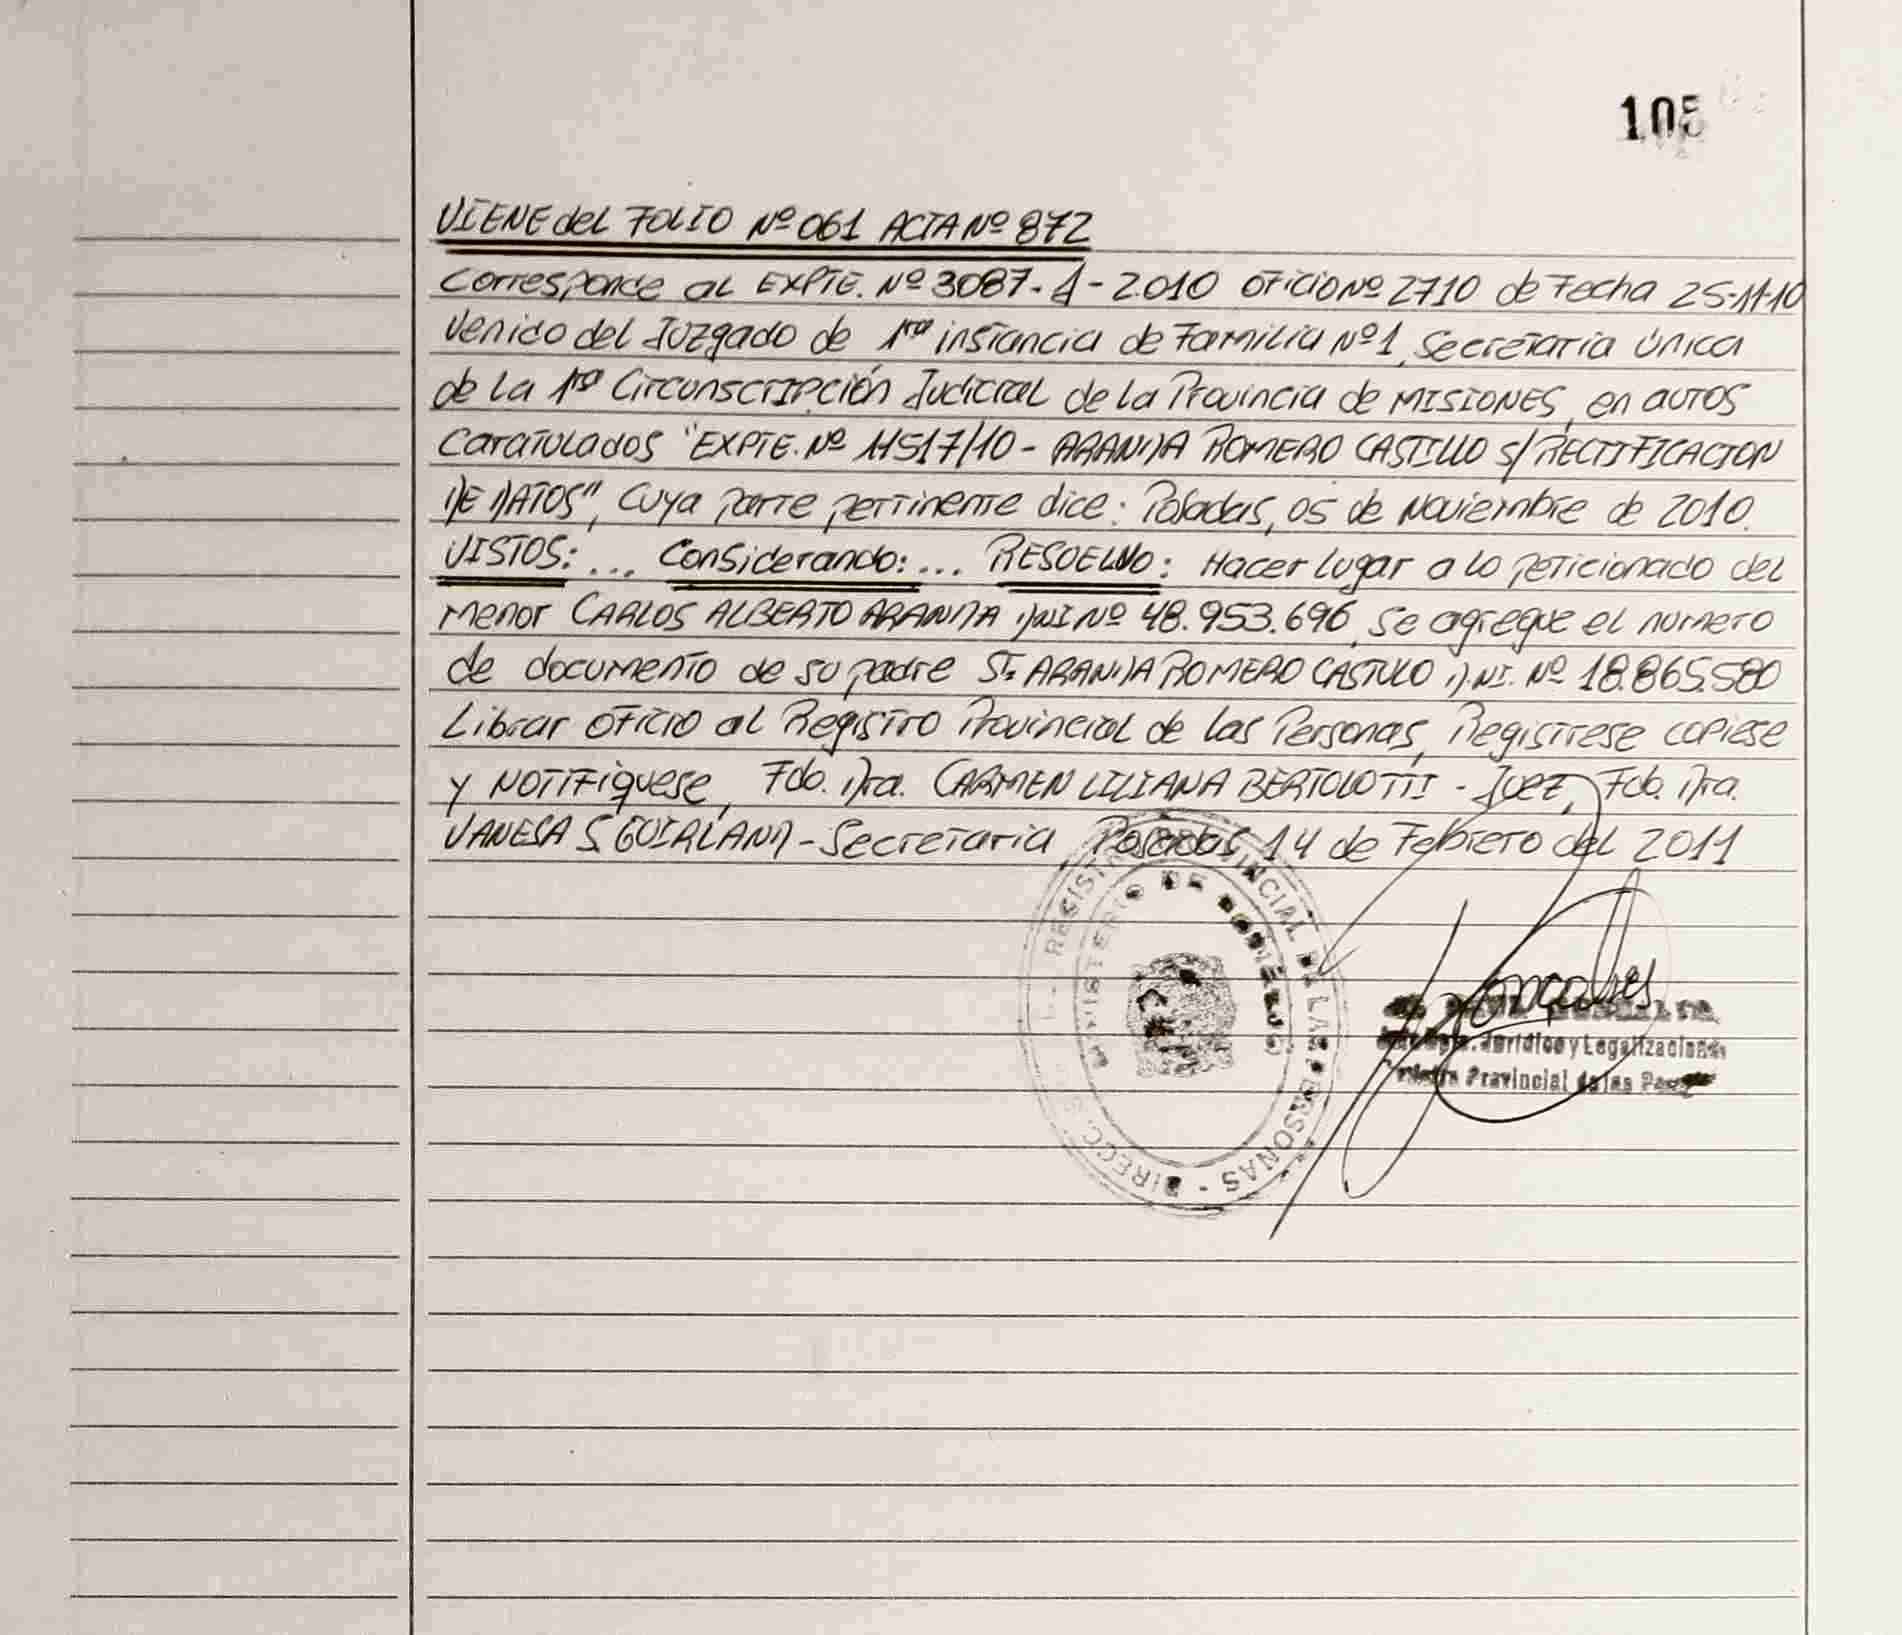 105
VIENE del FOLIO Nº 061 ACTA Nº 872
Corresponde al EXPTE. Nº 3087-A-2010 OFICIO Nº 2710 de Fecha 25-11-10
Venido del Juzgado de 1ra instancia de Familia Nº 1, Secretaria única
de la 1ra Circunscripción Judicial de la Provincia de MISIONES, en autos
Caratulados "EXPTE. Nº 11517/10 - ARANDA ROMERO CASTILLO S/ RECTIFICACION
DE DATOS", Cuya parte pertinente dice: Posadas, 05 de Noviembre de 2010.
VISTOS: ... Considerando: ... RESUELVO: Hacer lugar a lo peticionado del
menor CARLOS ALBERTO ARANDA DNI Nº 48.953.696, se agregue el numero
de documento de su padre Sr. ARANDA ROMERO CASTULO D.NI. Nº 18.865.580
Librar oficio al Registro Provincial de las Personas, Registrese copiese
y NOTIFIQUESE, Fdo. Dra. CARMEN LILIANA BERTOLOTTI - Juez, Fdo. Dra.
VANESA S. GUIRLAND - Secretaria, Posadas 14 de Febrero del 2011
REGISTRO PROVINCIAL DE LAS PERSONAS - DIRECC.
MINISTERIO DE
Jurídico y Legalizaciones
Provincial de las